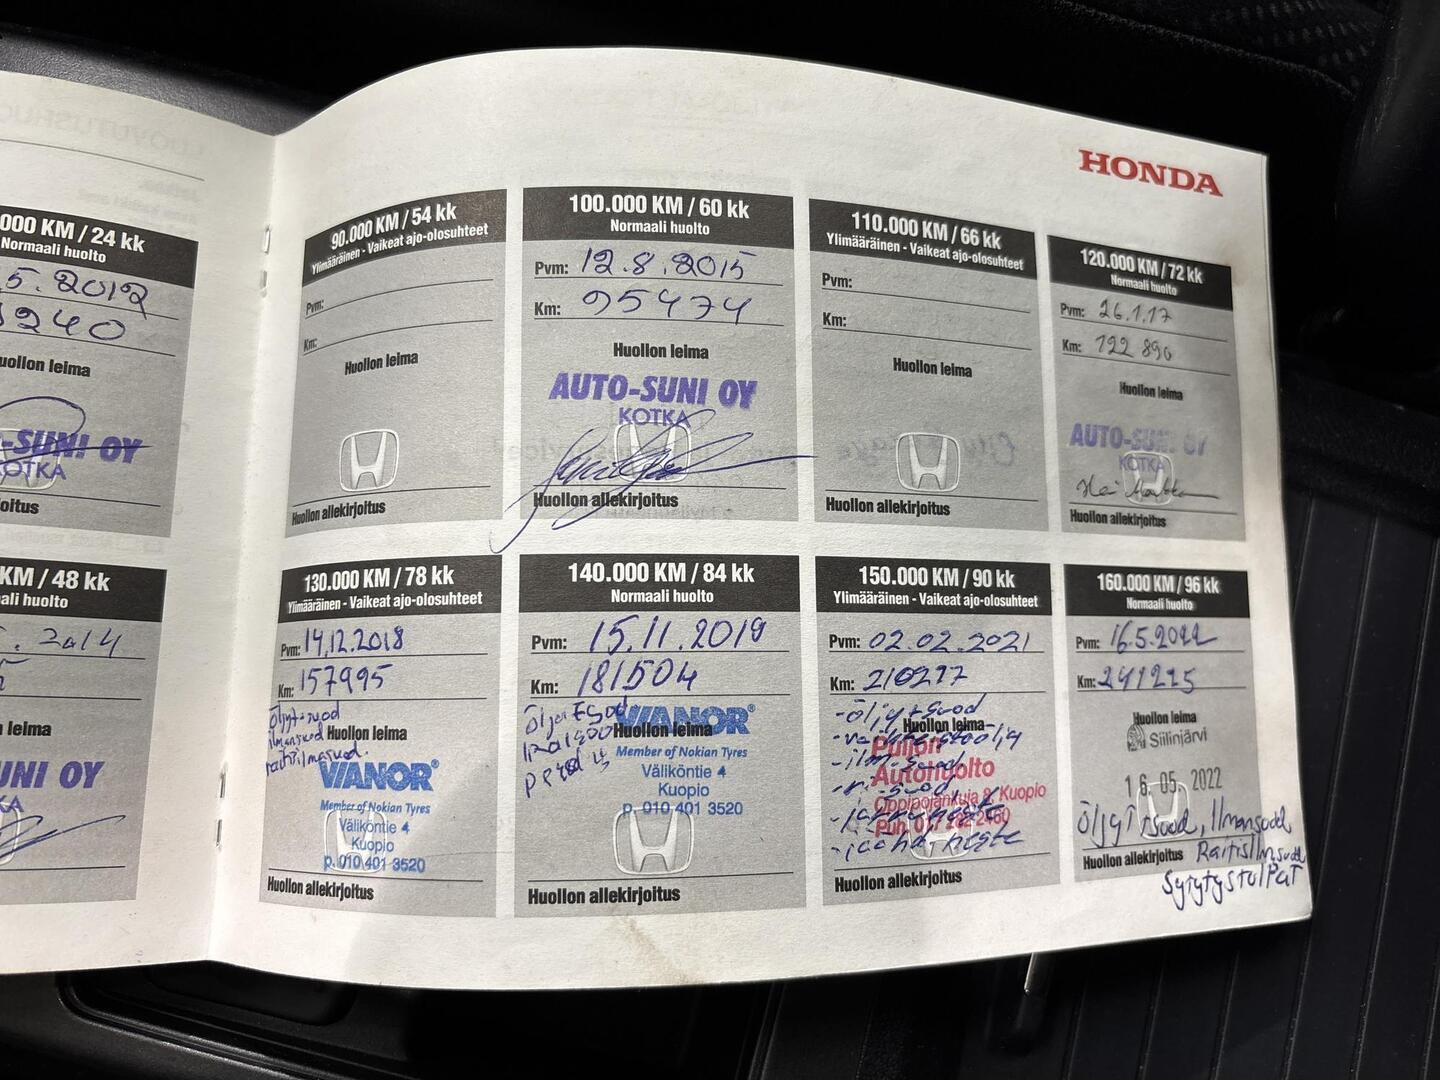 HONDA
000 KM / 24 kk
Normaali huolto
5.2012
240
uollon leima
-SUNI OY
KOTKA
oitus
KM / 48 kk
ali huolto
2014
n leima
UNI OY
KA
itus
90.000 KM / 54 kk
Ylimääräinen - Vaikeat ajo-olosuhteet
Pvm:
Km:
Huollon leima
Huollon allekirjoitus
100.000 KM / 60 kk
Normaali huolto
Pvm: 12.8.2015
Km: 95474
Huollon leima
AUTO-SUNI OY
KOTKA
Huollon allekirjoitus
110.000 KM / 66 kk
Ylimääräinen - Vaikeat ajo-olosuhteet
Pvm:
Km:
Huollon leima
Huollon allekirjoitus
120.000 KM / 72 kk
Normaali huolto
Pvm: 26.1.17
Km: 122 890
Huollon leima
AUTO-SUNI OY
KOTKA
Huollon allekirjoitus
130.000 KM / 78 kk
Ylimääräinen - Vaikeat ajo-olosuhteet
Pvm: 14.12.2018
Km: 157995
öljyt+suod
ilmansuod
raitisilmasuod.
Huollon leima
VIANOR
Member of Nokian Tyres
Väliköntie 4
Kuopio
p. 010 401 3520
Huollon allekirjoitus
140.000 KM / 84 kk
Normaali huolto
Pvm: 15.11.2019
Km: 181504
Huollon leima
VIANOR
Member of Nokian Tyres
Väliköntie 4
Kuopio
p. 010 401 3520
Huollon allekirjoitus
150.000 KM / 90 kk
Ylimääräinen - Vaikeat ajo-olosuhteet
Pvm: 02.02.2021
Km: 210277
-öljy+suod
Huollon leima
Puijon
Autohuolto
-ilm.suod
-jarruneste
Oppipojankuja 8 Kuopio
-jäähd.neste
Huollon allekirjoitus
160.000 KM / 96 kk
Normaali huolto
Pvm: 16.5.2022
Km: 241225
Huollon leima
Siilinjärvi
16. 05. 2022
Öljyt+suod, Ilmansuod,
Huollon allekirjoitus Raitisilmsuod
Sytytystulpat